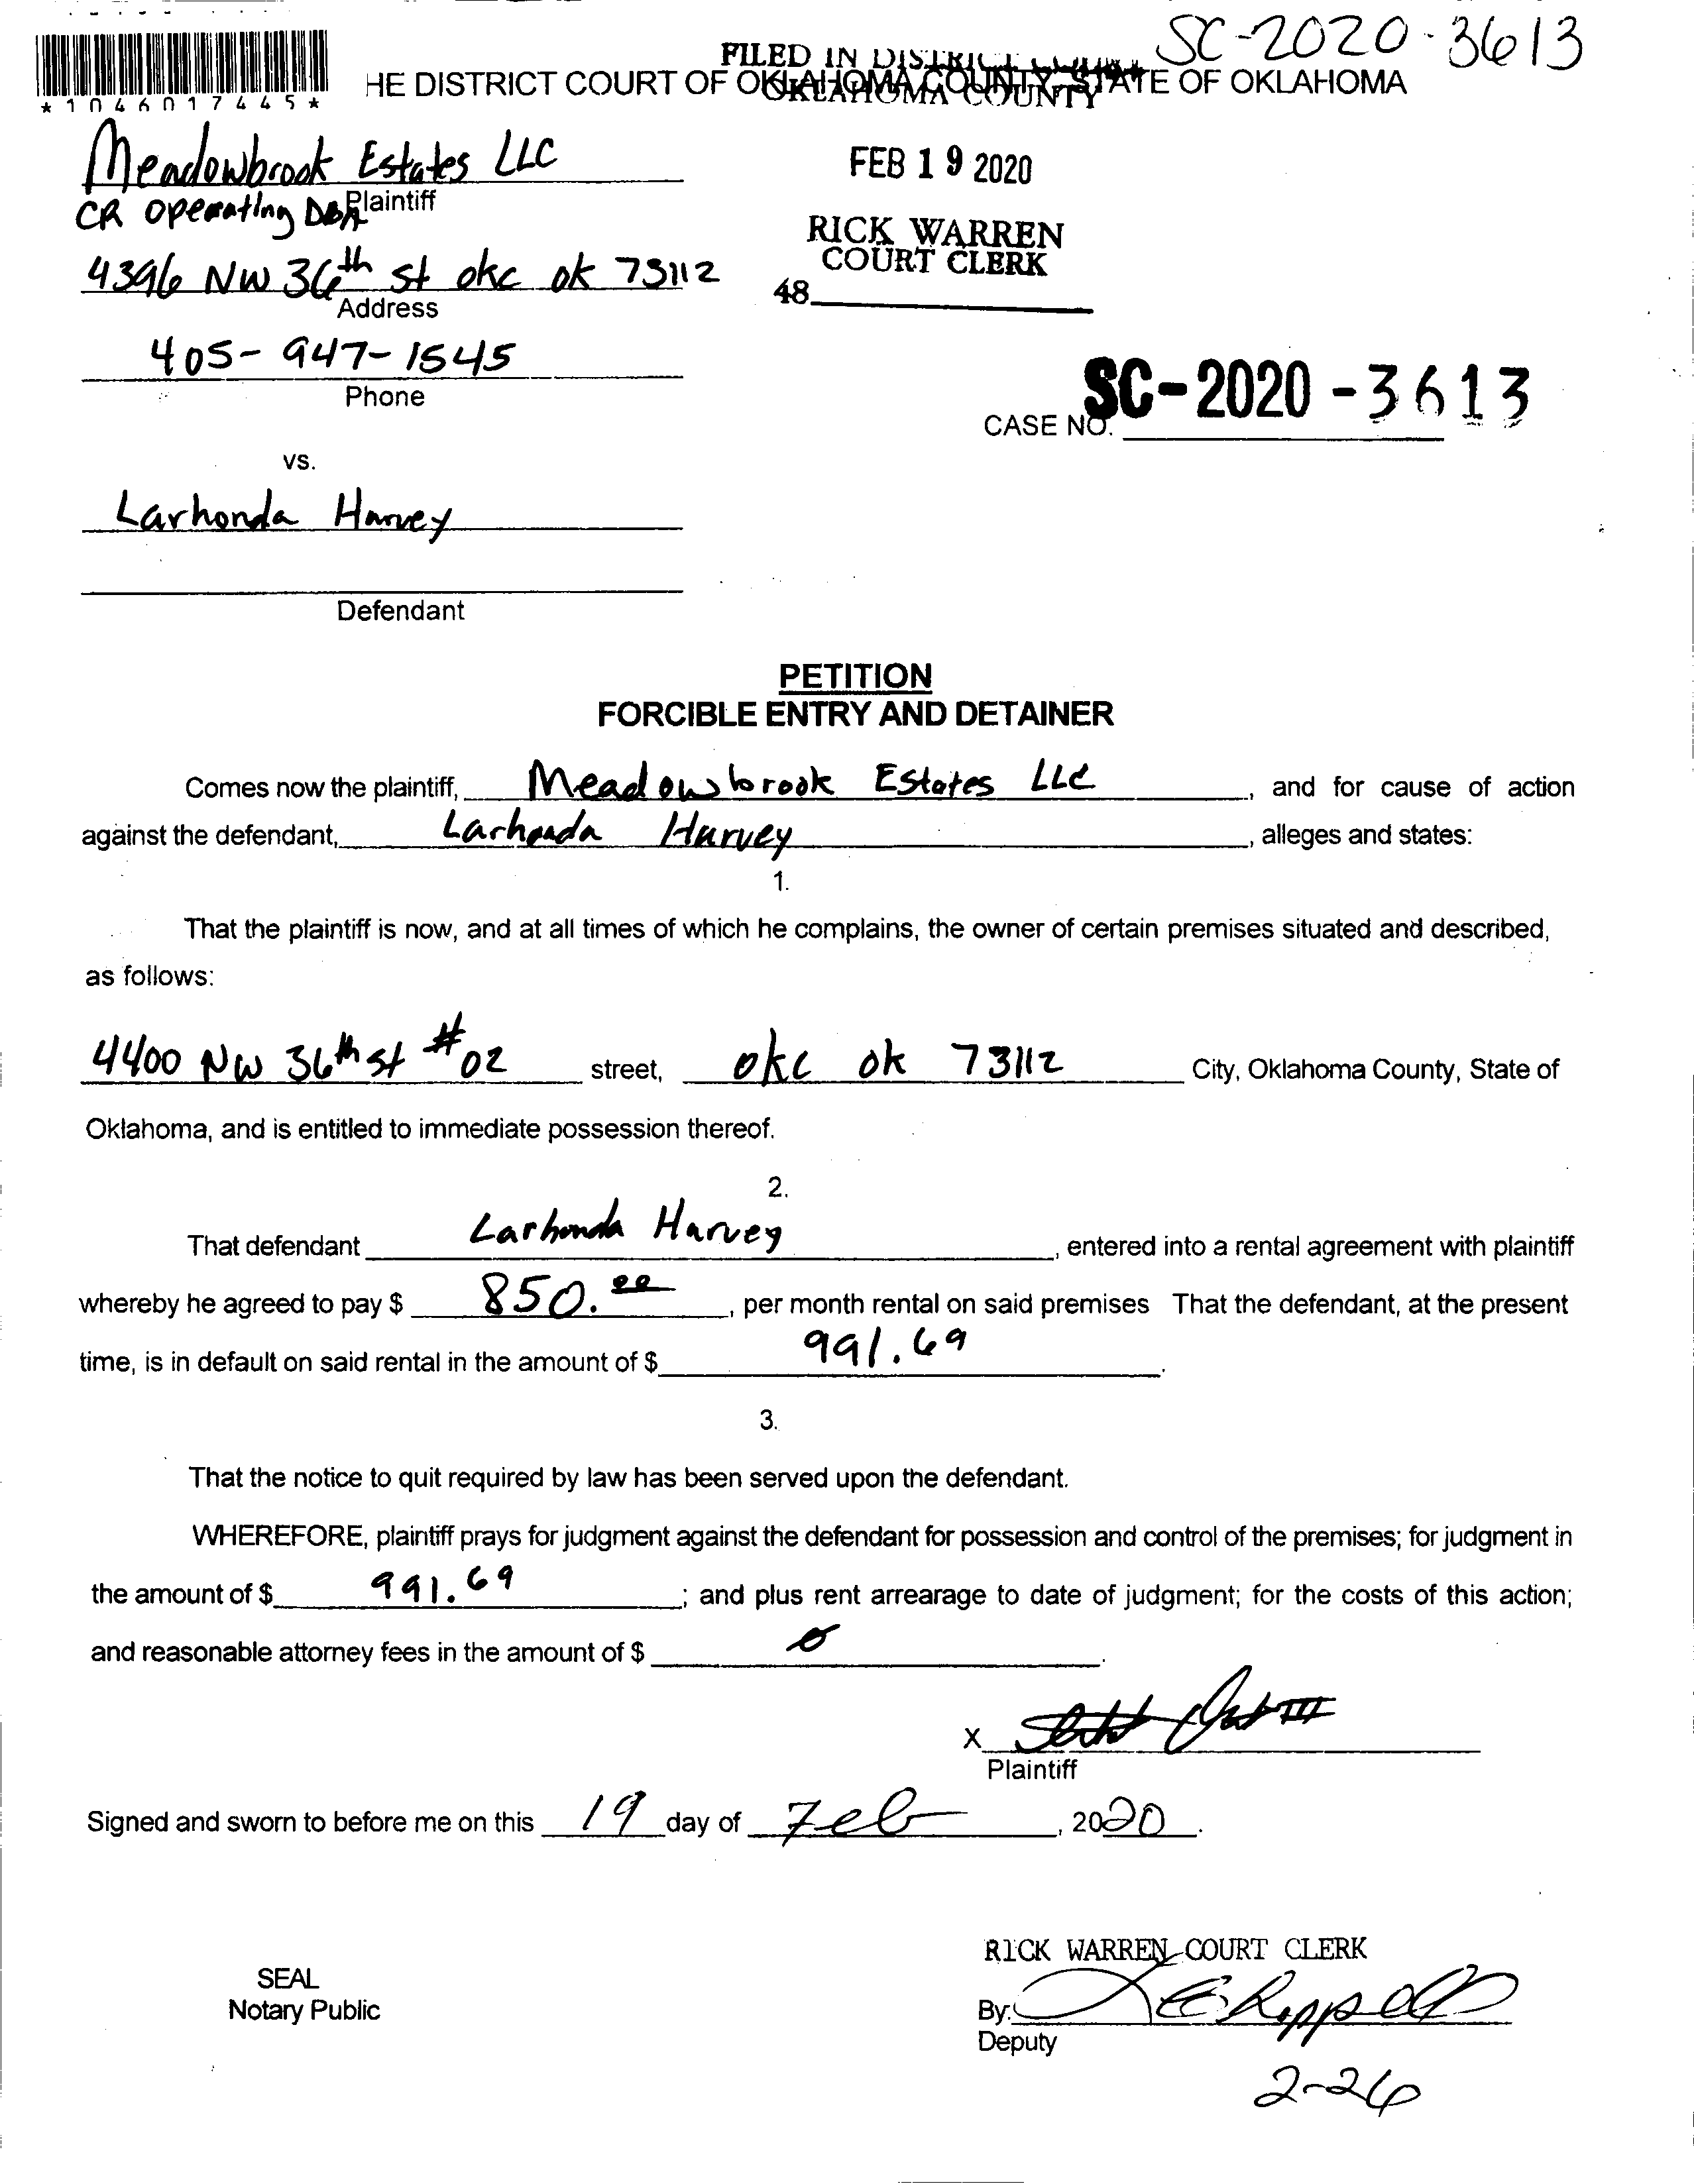 SC-2020-3613
FILED IN DISTRICT COURT
HE DISTRICT COURT OF OKLAHOMA COUNTY, STATE OF OKLAHOMA
OKLAHOMA COUNTY
*1046017445*
Meadowbrook Estates LLC
Plaintiff
CR Operating DBA
FEB 19 2020
RICK WARREN
COURT CLERK
48
4396 NW 36th st okc ok 73112
Address
405-947-1545
Phone
CASE NO. SC-2020-3613
vs.
Larhonda Harvey
Defendant
PETITION
FORCIBLE ENTRY AND DETAINER
Comes now the plaintiff, Meadowbrook Estates LLC, and for cause of action
against the defendant, Larhonda Harvey, alleges and states:
1.
That the plaintiff is now, and at all times of which he complains, the owner of certain premises situated and described,
as follows:
4400 NW 36th st #02 street, okc ok 73112 City, Oklahoma County, State of
Oklahoma, and is entitled to immediate possession thereof.
2.
That defendant Larhonda Harvey, entered into a rental agreement with plaintiff
whereby he agreed to pay $ 850.00, per month rental on said premises That the defendant, at the present
time, is in default on said rental in the amount of $ 991.69.
3.
That the notice to quit required by law has been served upon the defendant.
WHEREFORE, plaintiff prays for judgment against the defendant for possession and control of the premises; for judgment in
the amount of $ 991.69; and plus rent arrearage to date of judgment; for the costs of this action;
and reasonable attorney fees in the amount of $ 0.
X III
Plaintiff
Signed and sworn to before me on this 19 day of Feb, 2020.
RICK WARREN COURT CLERK
SEAL
Notary Public
By:
Deputy
2-26